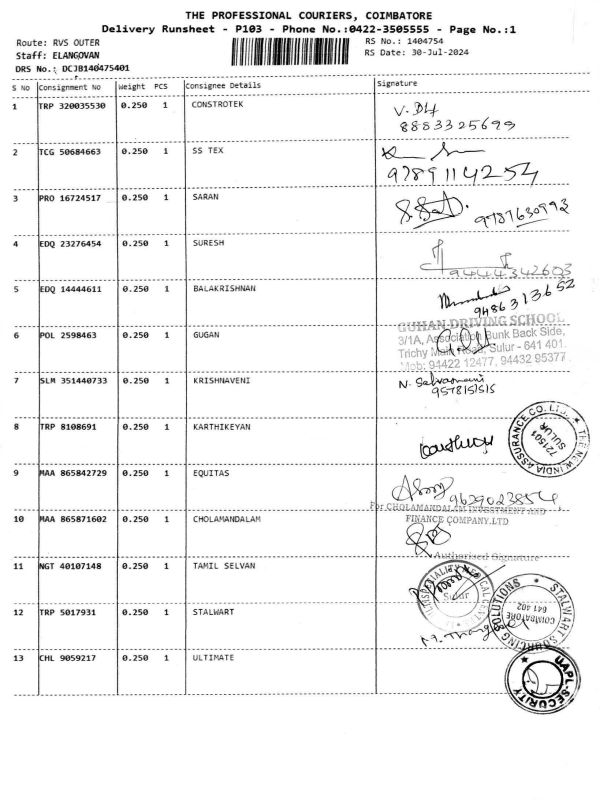 THE PROFESSIONAL COURIERS, COIMBATORE
Delivery Runsheet - P103 - Phone No.:0422-3505555 - Page No.:1
Route: RVS OUTER
RS No.: 1404754
Staff: ELANGOVAN
RS Date: 30-Jul-2024
DRS No.: DCJB140475401
S No Consignment No Weight PCS Consignee Details Signature
1 TRP 320035530 0.250 1 CONSTROTEK
8883325699
2 TCG 50684663 0.250 1 SS TEX
9789114254
3 PRO 16724517 0.250 1 SARAN
9787630993
4 EDQ 23276454 0.250 1 SURESH
9444342603
5 EDQ 14444611 0.250 1 BALAKRISHNAN
9486313652
GUHAN DRIVING SCHOOL
6 POL 2598463 0.250 1 GUGAN
3/1A, Association Bunk Back Side,
Trichy Main Road, Sulur - 641 401.
Mob: 94422 12477, 94432 95377
7 SLM 351440733 0.250 1 KRISHNAVENI
N. Selvamani
9578151515
8 TRP 8108691 0.250 1 KARTHIKEYAN
THE NEW INDIA ASSURANCE CO. LTD.
721501
SULUR
9 MAA 865842729 0.250 1 EQUITAS
9629023854
For CHOLAMANDALAM INVESTMENT AND
FINANCE COMPANY.LTD
10 MAA 865871602 0.250 1 CHOLAMANDALAM
Authorised Signature
11 NGT 40107148 0.250 1 TAMIL SELVAN
Sulur
12 TRP 5017931 0.250 1 STALWART
STALWART SOURCING SOLUTIONS
COIMBATORE
641 402
13 CHL 9059217 0.250 1 ULTIMATE
UAPL-SECURITY